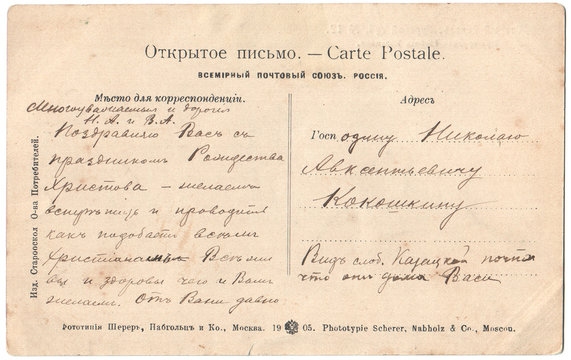 Открытое письмо. — Carte Postale.
ВСЕМІРНЫЙ ПОЧТОВЫЙ СОЮЗЪ. РОССІЯ.
Мѣсто для корреспонденціи.
Многоуважаемые и дорогіе
Н. А. и В. А.
Поздравляю Васъ съ
праздникомъ Рождества
Христова — желаемъ
встрѣтить и проводить
какъ подобаетъ всѣмъ
христіанамъ
вы и здоровы чего и Вамъ
желаемъ. Отъ Вани давно
Адресъ
Господину Николаю
Авксентьевичу
Кокошкину
Видъ слоб. Казацкой почти
что отъ дома Васи
Изд. Староосkол О-ва Потребителей.
Фототипія Шереръ, Набгольцъ и Ко., Москва. 19 05. Phototypie Scherer, Nabholz & Co., Moscou.